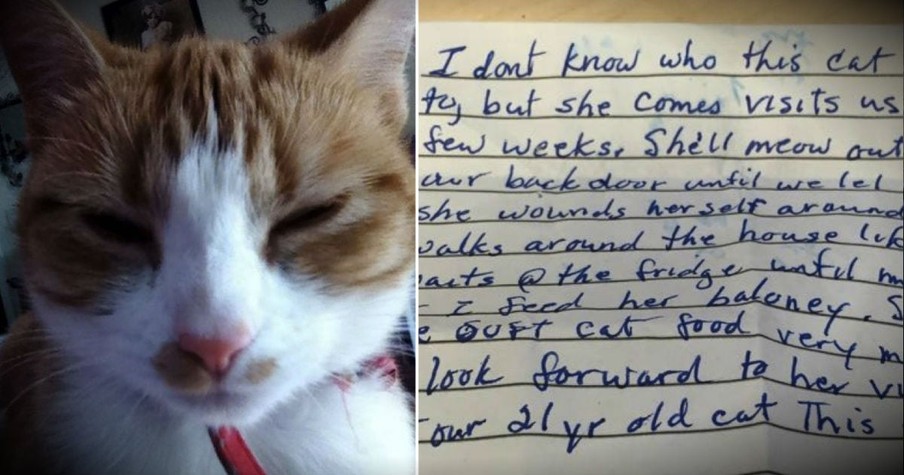 I dont know who this cat
to, but she comes visits us
few weeks. She'll meow out
our back door until we let
she wounds herself around
walks around the house lik
waits @ the fridge until m
I feed her baloney. S
e OUFT cat food very m
look forward to her vi
our 21 yr old cat This